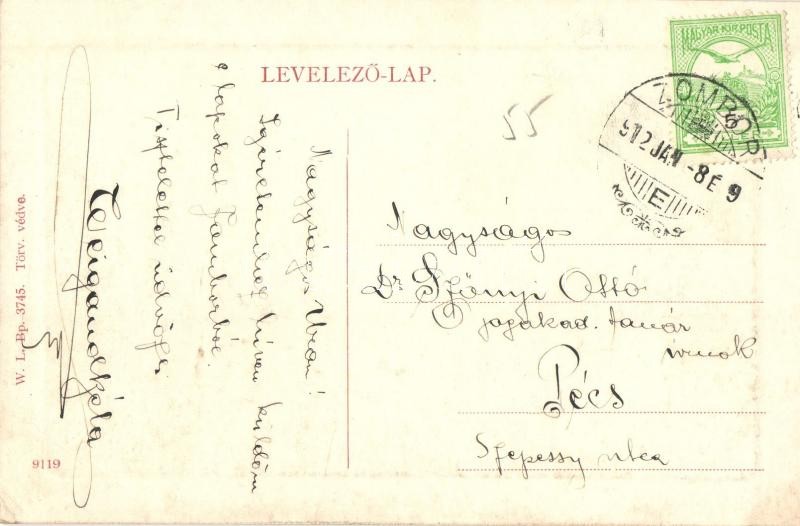 LEVELEZŐ-LAP.
MAGYAR KIR. POSTA
ZOMBOR
912 JAN -8 E 9
E
55
Nagyságos
Dr Szőnyi Ottó
jogakad. tanár
úrnak
Pécs
Szepessy utca
Nagyságos Uram!
Igéretemhez híven küldöm
e lapokat Zomborból.
Tisztelettel üdvözli
Weigand Béla
W. L. Bp. 3745. Törv. védve.
9119